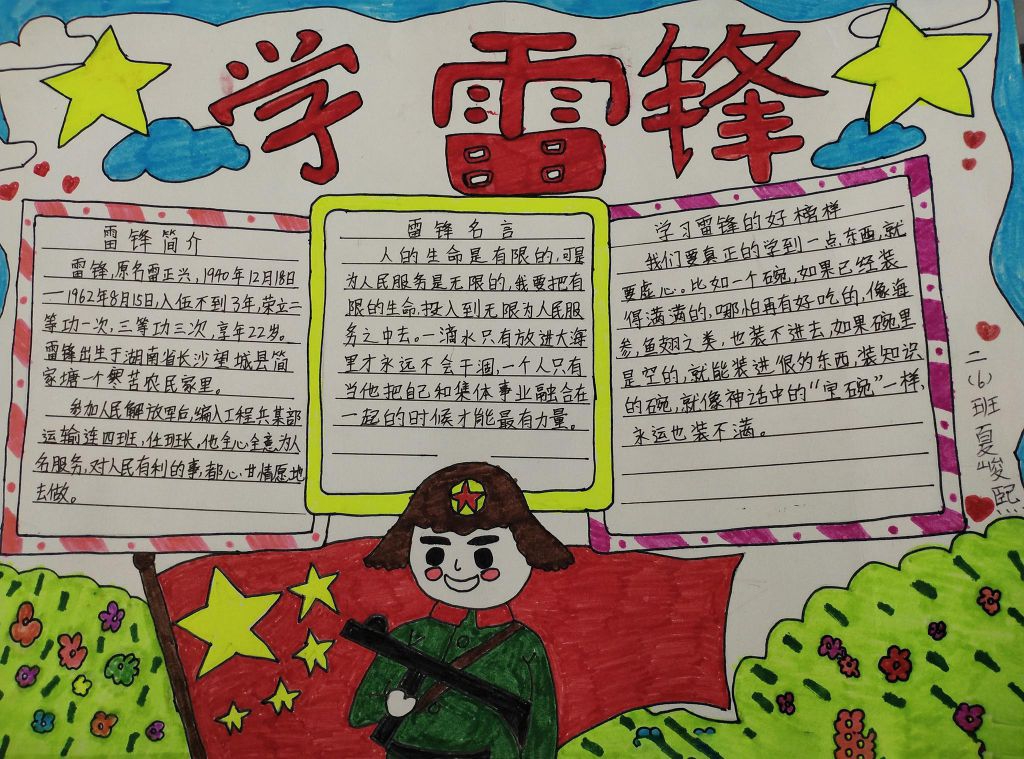 学雷锋
雷锋简介
雷锋,原名雷正兴,1940年12月18日
—1962年8月15日,入伍不到3年,荣立二
等功一次,三等功三次,享年22岁。
雷锋出生于湖南省长沙望城县简
家塘一个寒苦农民家里。
参加人民解放军后,编入工程兵某部
运输连四班,任班长。他全心全意为人
名服务,对人民有利的事,都心甘情愿地
去做。
雷锋名言
人的生命是有限的,可是
为人民服务是无限的,我要把有
限的生命,投入到无限为人民服
务之中去。一滴水只有放进大海
里才永远不会干涸,一个人只有
当他把自己和集体事业融合在
一起的时候才能最有力量。
学习雷锋的好榜样
我们要真正的学到一点东西,就
要虚心。比如一个碗,如果已经装
得满满的,哪怕再有好吃的,像海
参,鱼翅之类,也装不进去,如果碗里
是空的,就能装进很多东西,装知识
的碗,就像神话中的“宝碗”一样,
永远也装不满。
二(6)班夏峻熙